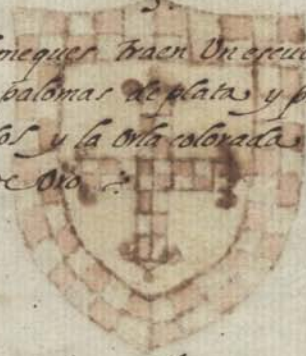 meques traen Un escu
palomas de plata y p
os y la orla colorada
de Oro